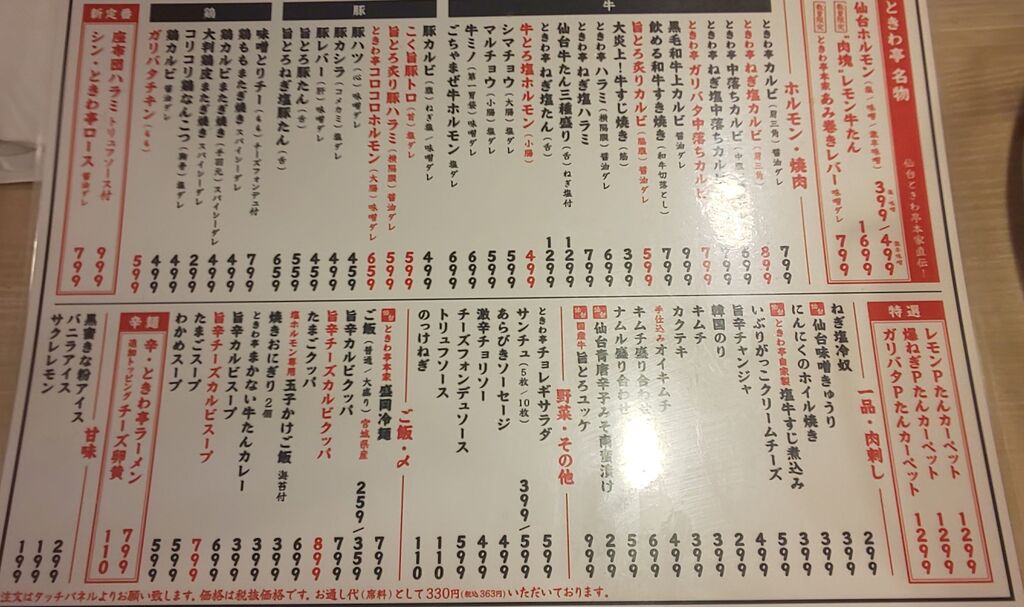 ときわ亭 名物
仙台ときわ亭本家直伝！
仙台ホルモン（塩/味噌/激辛味噌） 塩・味噌399/激辛味噌499
数量限定 "肉塊"レモン牛たん 1699
数量限定 ときわ亭本家あみ巻きレバー 味噌ダレ 799
ホルモン・焼肉
牛
ときわ亭カルビ（肩三角）醤油ダレ 799
ときわ亭 ねぎ塩カルビ（肩三角） 899
ときわ亭 中落ちカルビ
ときわ亭 ねぎ塩中落ちカルビ
ときわ亭 ガリバタ中落ちカルビ 799
黒毛和牛上カルビ 醤油ダレ 999
飲める和牛すき焼き（和牛切落とし） 799
旨とろ炙りカルビ（脇腹）醤油ダレ 599
大炎上！牛すじ焼き（筋） 399
ときわ亭 ハラミ（横隔膜）醤油ダレ 699
ときわ亭 ねぎ塩ハラミ 799
仙台牛たん三種盛り（舌）ねぎ塩付 1299
ときわ亭 ねぎ塩たん（舌） 1299
牛とろ塩ホルモン（小腸） 499
シマチョウ（大腸）塩ダレ 599
マルチョウ（小腸）塩ダレ 599
牛ミノ（第一胃袋）味噌ダレ 699
ごちゃまぜ牛ホルモン 塩ダレ 699
豚
豚カルビ（腹）ねぎ塩/味噌ダレ 499
こく旨豚トロ（首）塩ダレ 599
旨とろ炙り豚ハラミ（横隔膜）醤油ダレ 599
ときわ亭コロコロホルモン（大腸）味噌ダレ 659
豚ハツ（心）味噌ダレ 459
豚カシラ（コメカミ）塩ダレ 499
豚レバー（肝）味噌ダレ 459
旨とろ豚たん（舌） 559
旨とろねぎ塩豚たん（舌） 659
鶏
味噌とりチー（もも）チーズフォンデュ付 799
鶏ももまたぎ焼き スパイシーダレ 499
鶏カルビまたぎ焼き（手羽元）スパイシーダレ 499
大判鶏皮またぎ焼き スパイシーダレ 499
コリコリ鶏なんこつ（胸骨）塩ダレ 299
鶏カルビ 醤油ダレ 499
ガリバタチキン（もも） 599
新定番
座布団ハラミ トリュフソース付 999
シン・ときわ亭ロース 醤油ダレ 799
特選
レモンPたんカーペット 1299
爆ねぎPたんカーペット 1299
ガリバタPたんカーペット 1299
一品・肉刺し
ねぎ塩冷奴 299
仙台 仙台味噌きゅうり 399
にんにくのホイル焼き 399
仙台 ときわ亭自家製 塩牛すじ煮込み 599
いぶりがっこクリームチーズ 499
旨辛チャンジャ 299
韓国のり 399
キムチ 399
カクテキ 499
手仕込み オイキムチ
キムチ盛り合わせ
ナムル盛り合わせ
仙台 仙台青唐辛子みそ南蛮漬け 299
仙台 国産牛 旨とろユッケ 999
野菜・その他
ときわ亭 チョレギサラダ 599
サンチュ（5枚/10枚） 399/599
あらびきソーセージ 499
激辛チョリソー 499
チーズフォンデュソース 599
トリュフソース 110
のっけねぎ 110
ご飯・〆
仙台 ときわ亭本家 盛岡冷麺 799
ご飯（普通/大盛り）宮城県産 259/359
旨辛カルビクッパ 799
旨辛チーズカルビクッパ 899
たまごクッパ 699
塩ホルモン専用 玉子かけご飯 海苔付 399
焼きおにぎり 2個 399
ときわ亭 まかない牛たんカレー 399
旨辛カルビスープ 699
旨辛チーズカルビスープ 799
たまごスープ 599
わかめスープ 599
辛麺
辛・ときわ亭ラーメン 799
追加トッピング チーズ/卵黄 110
甘味
黒蜜きな粉アイス 299
バニラアイス 199
サクレレモン 199
注文はタッチパネルよりお願い致します。価格は税抜価格です。お通し代（席料）として330円（税込363円）いただいております。